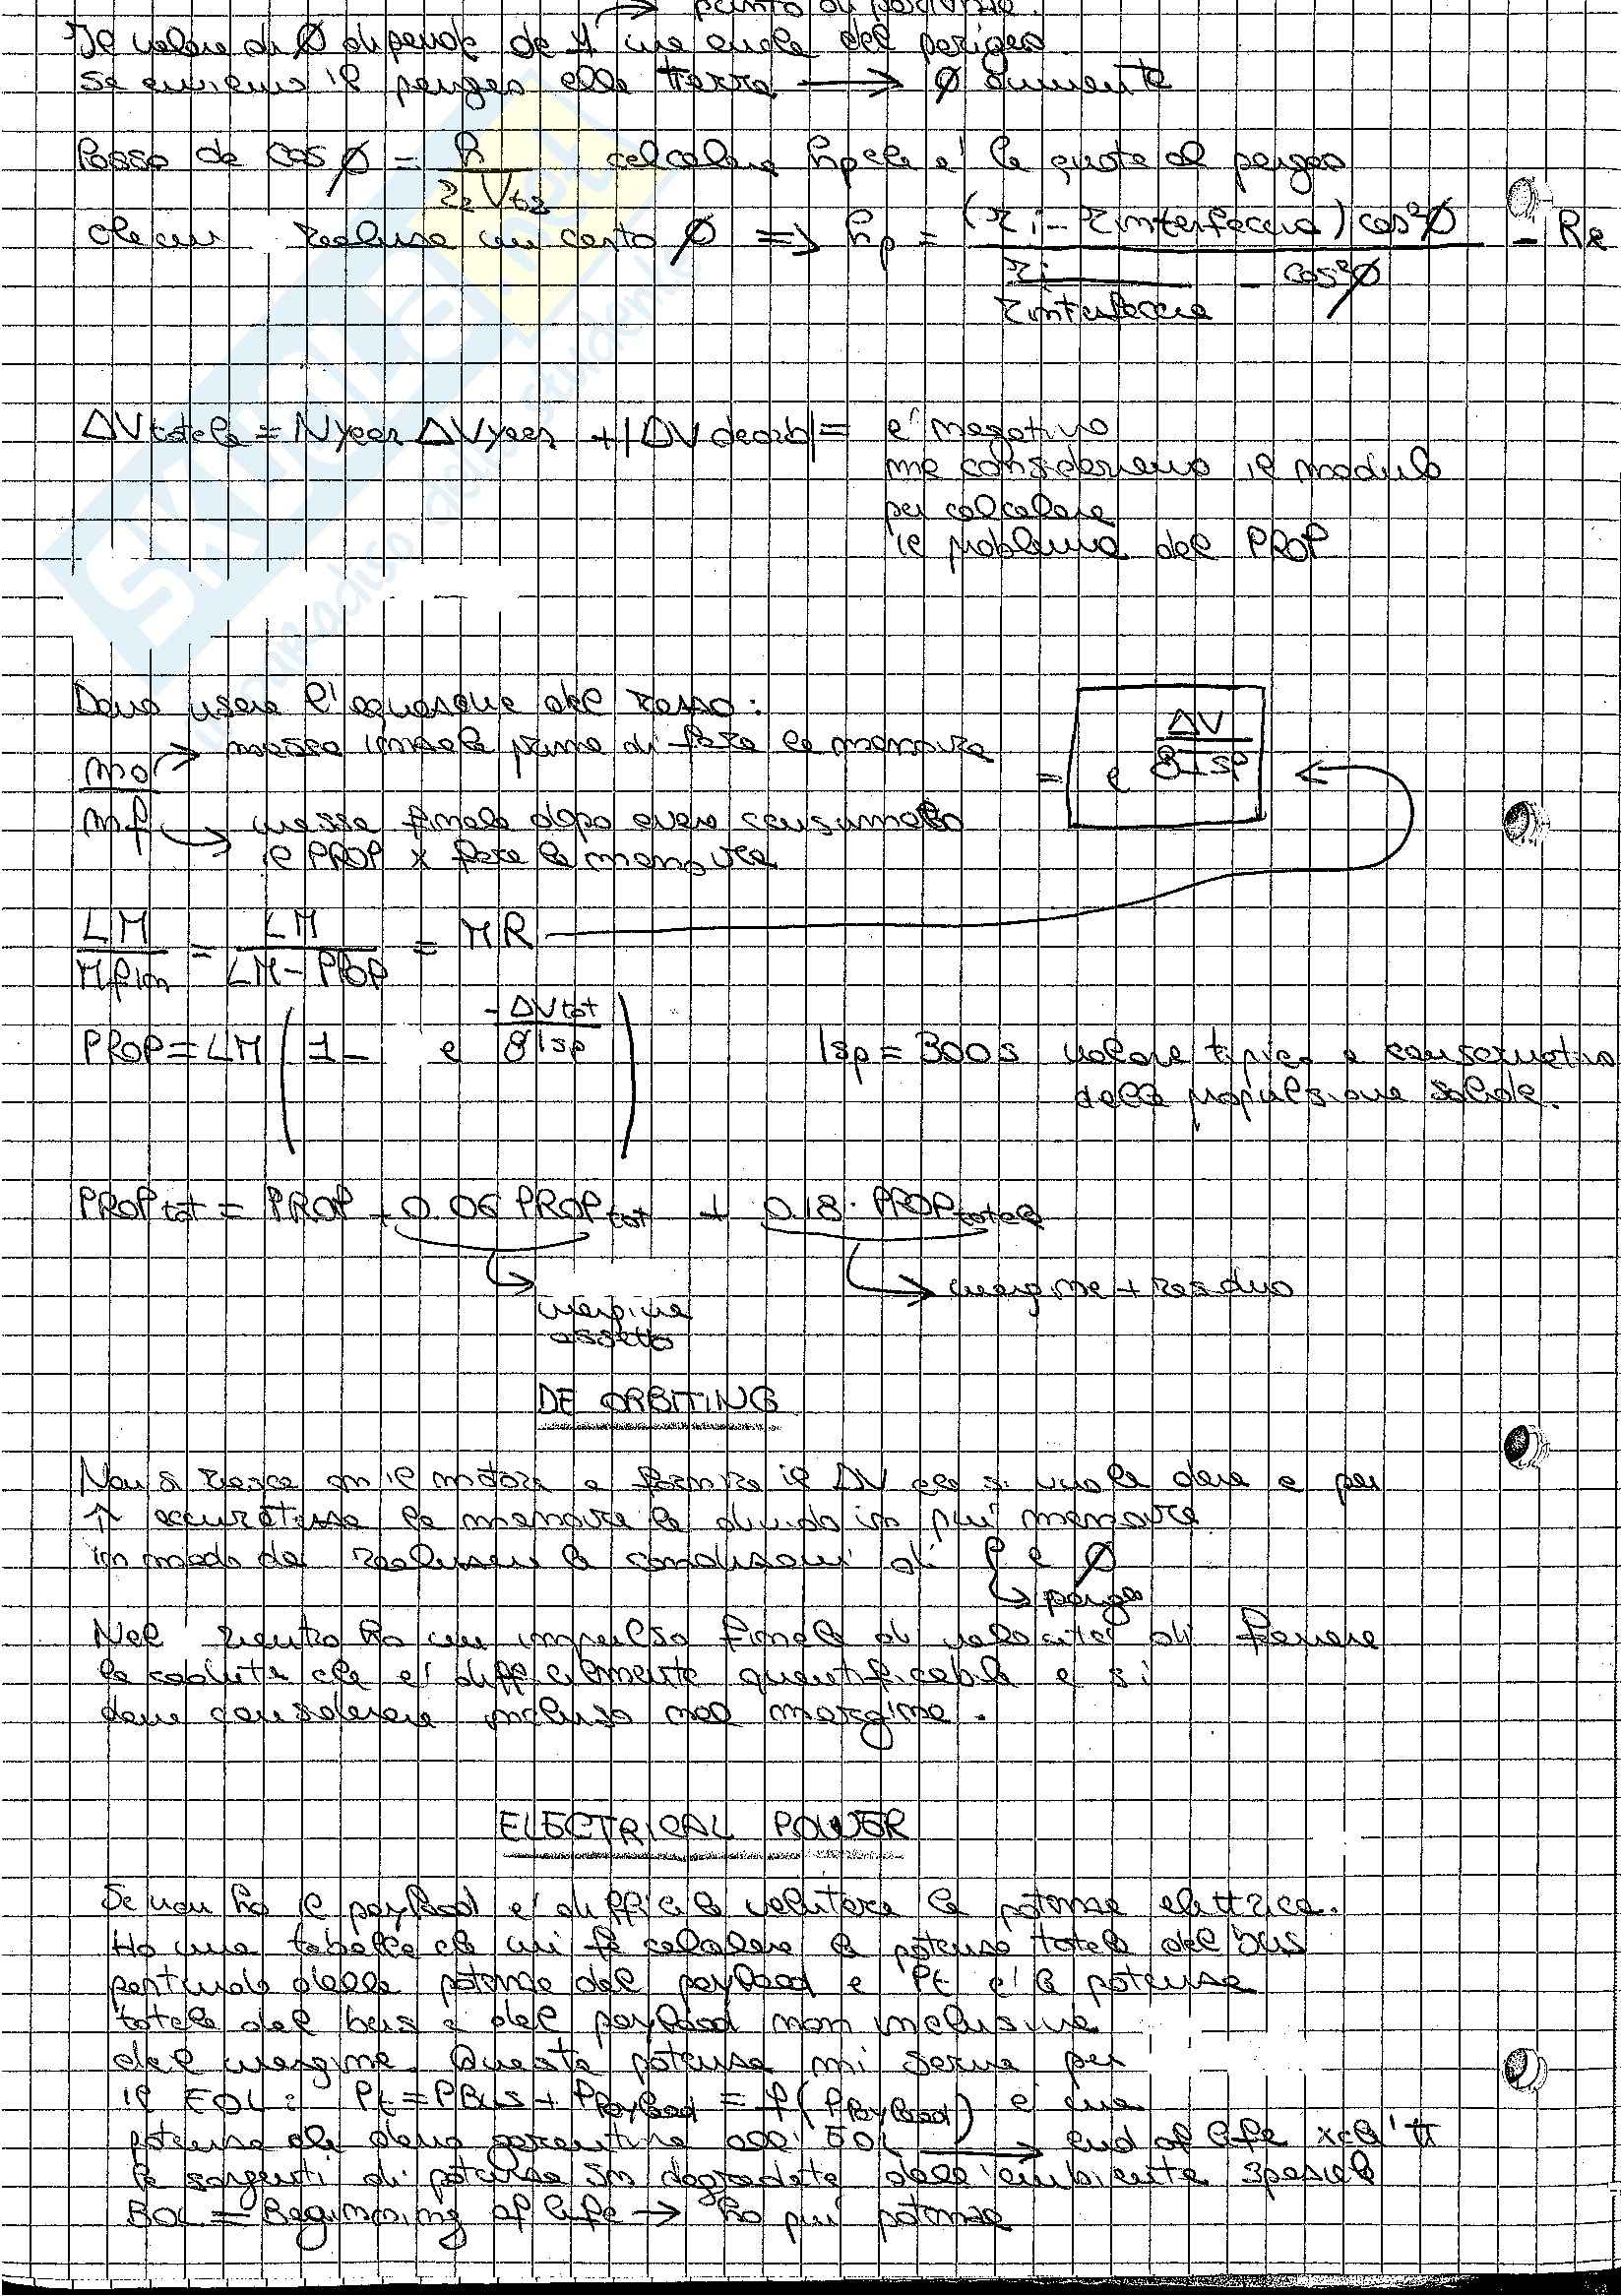 → punto di partenza.
Il valore di Ø dipende da r1 ma anche del perigeo.
Se avviciniamo il perigeo alla terra → Ø aumenta
Posso da cos Ø = h / r2 Vt2 calcolare hp che è la quota al perigeo
che mi realizza un certo Ø => hp = (ri - rinterfaccia) cos²Ø / (ri / rinterfaccia - cos²Ø) - RE
ΔVtotale = Nyear ΔVyear + |ΔVdeorb| = è negativo
ma consideriamo il modulo
per calcolare
il problema del PROP
Devo usare l'equazione del razzo:
m0 → massa iniziale prima di fare la manovra = e^(ΔV / g Isp)
mf → massa finale dopo avere consumato
il PROP x fare la manovra
LM / Mfin = LM / (LM - PROP) = MR
PROP = LM (1 - e^(-ΔVtot / g Isp)) Isp = 300s valore tipico e conservativo
della propulsione solida.
PROPtot = PROP + 0.06 PROPtot + 0.18 · PROPtotale
→ margine + residuo
margine
assetto
DE ORBITING
Non si riesce con il motore a fornire il ΔV che si vuole dare e per
↑ accuratezza la manovra la divido in più manovre
in modo da realizzare le condizioni di P e Ø
→ perigeo
Nel rientro ho un impulso finale di velocità di frenare
la caduta che è difficilmente quantificabile e si
deve considerare incluso nel margine.
ELECTRICAL POWER
Se non ho il payload è difficile valutare la potenza elettrica.
Ho una tabella che mi fa calcolare la potenza totale del bus
partendo dalla potenza del payload e Pt è la potenza
totale del bus e del payload non inclusiva
del margine. Questa potenza mi serve per
il EOL: Pt = PBus + PPayload = f(PPayload) è una
potenza che devo garantire all'EOL → end of life xchè tt
le sorgenti di potenza sn degradate dall'ambiente spaziale
BOL = Beginning of life → ho più potenza
SKUOLA.net